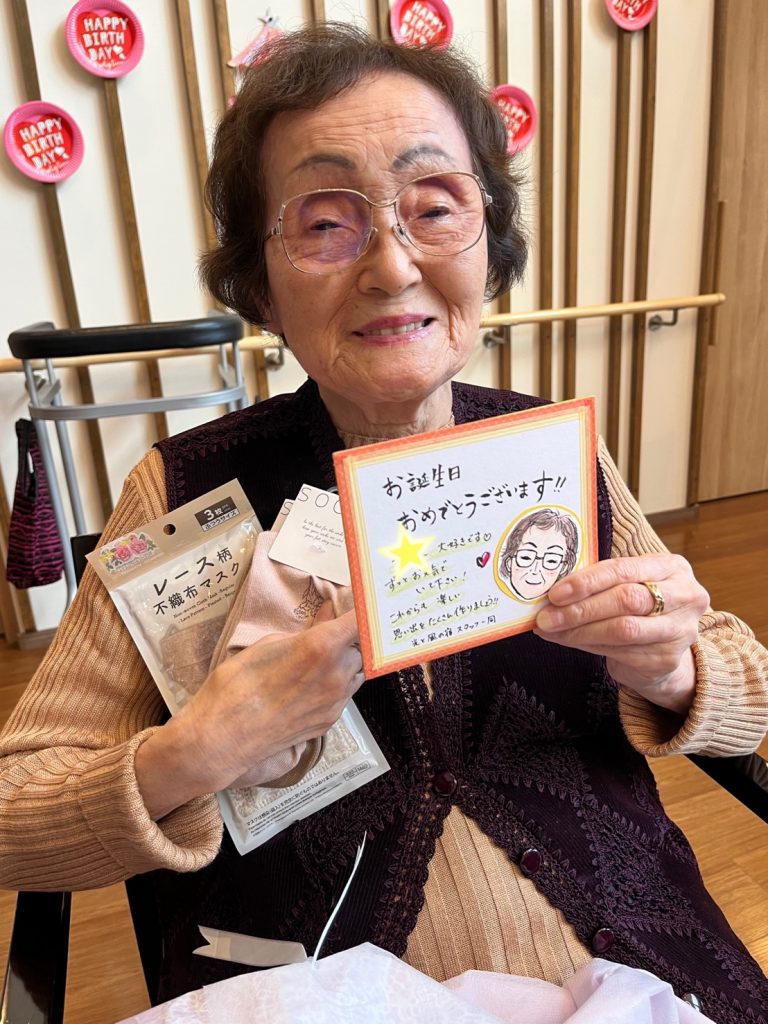 HAPPY
BIRTH
DAY
HAPPY
BIRTH
DAY
HAPPY
BIRTH
DAY
HAPPY
BIRTH
DAY
HAPPY
BIRTH
DAY
お誕生日
おめでとうございます!!
大好きです♡
ずっとお元気で
いて下さい!
これからも楽しい
思い出をたくさん作りましょう!!
光と風の宿 スタッフ一同
3枚
レース柄
不織布マスク
SOC